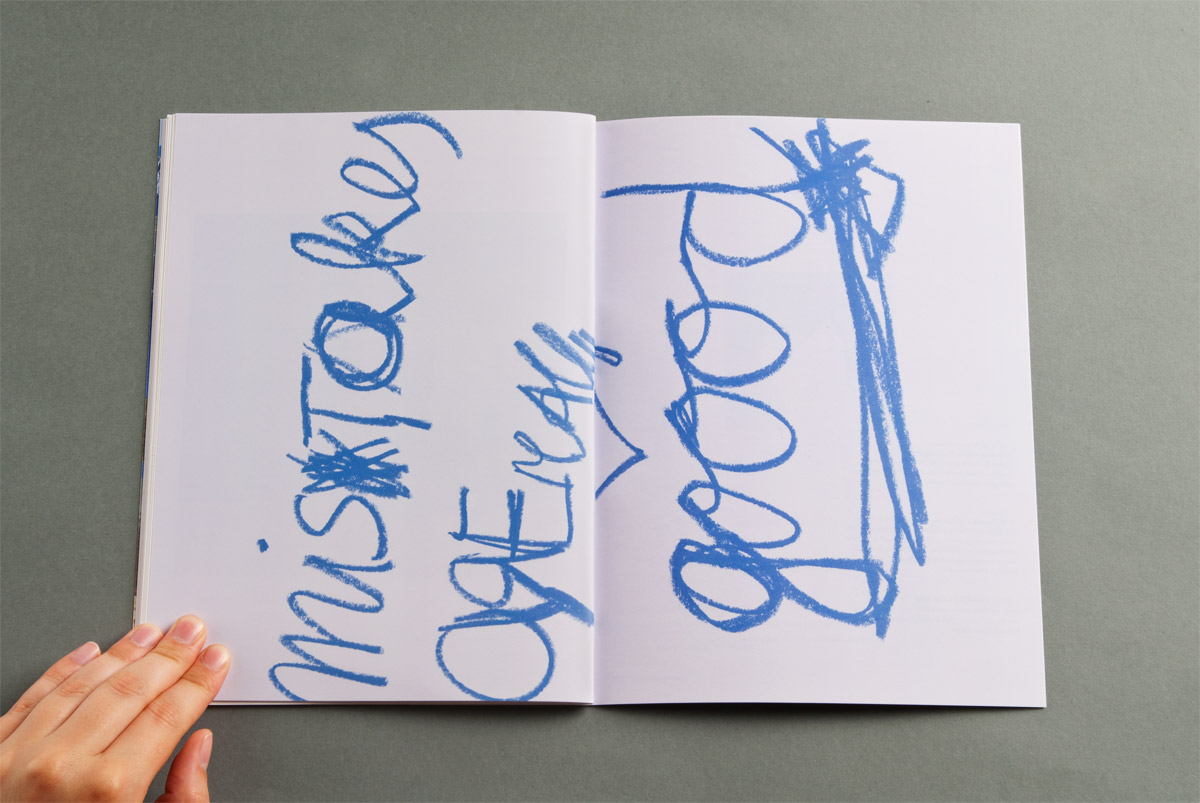 misTakes
arE really
goood